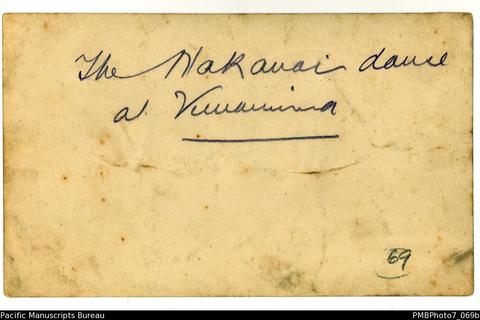 The Nakanai dance
at Vunairima
69
Pacific Manuscripts Bureau
PMBPhoto7_069b